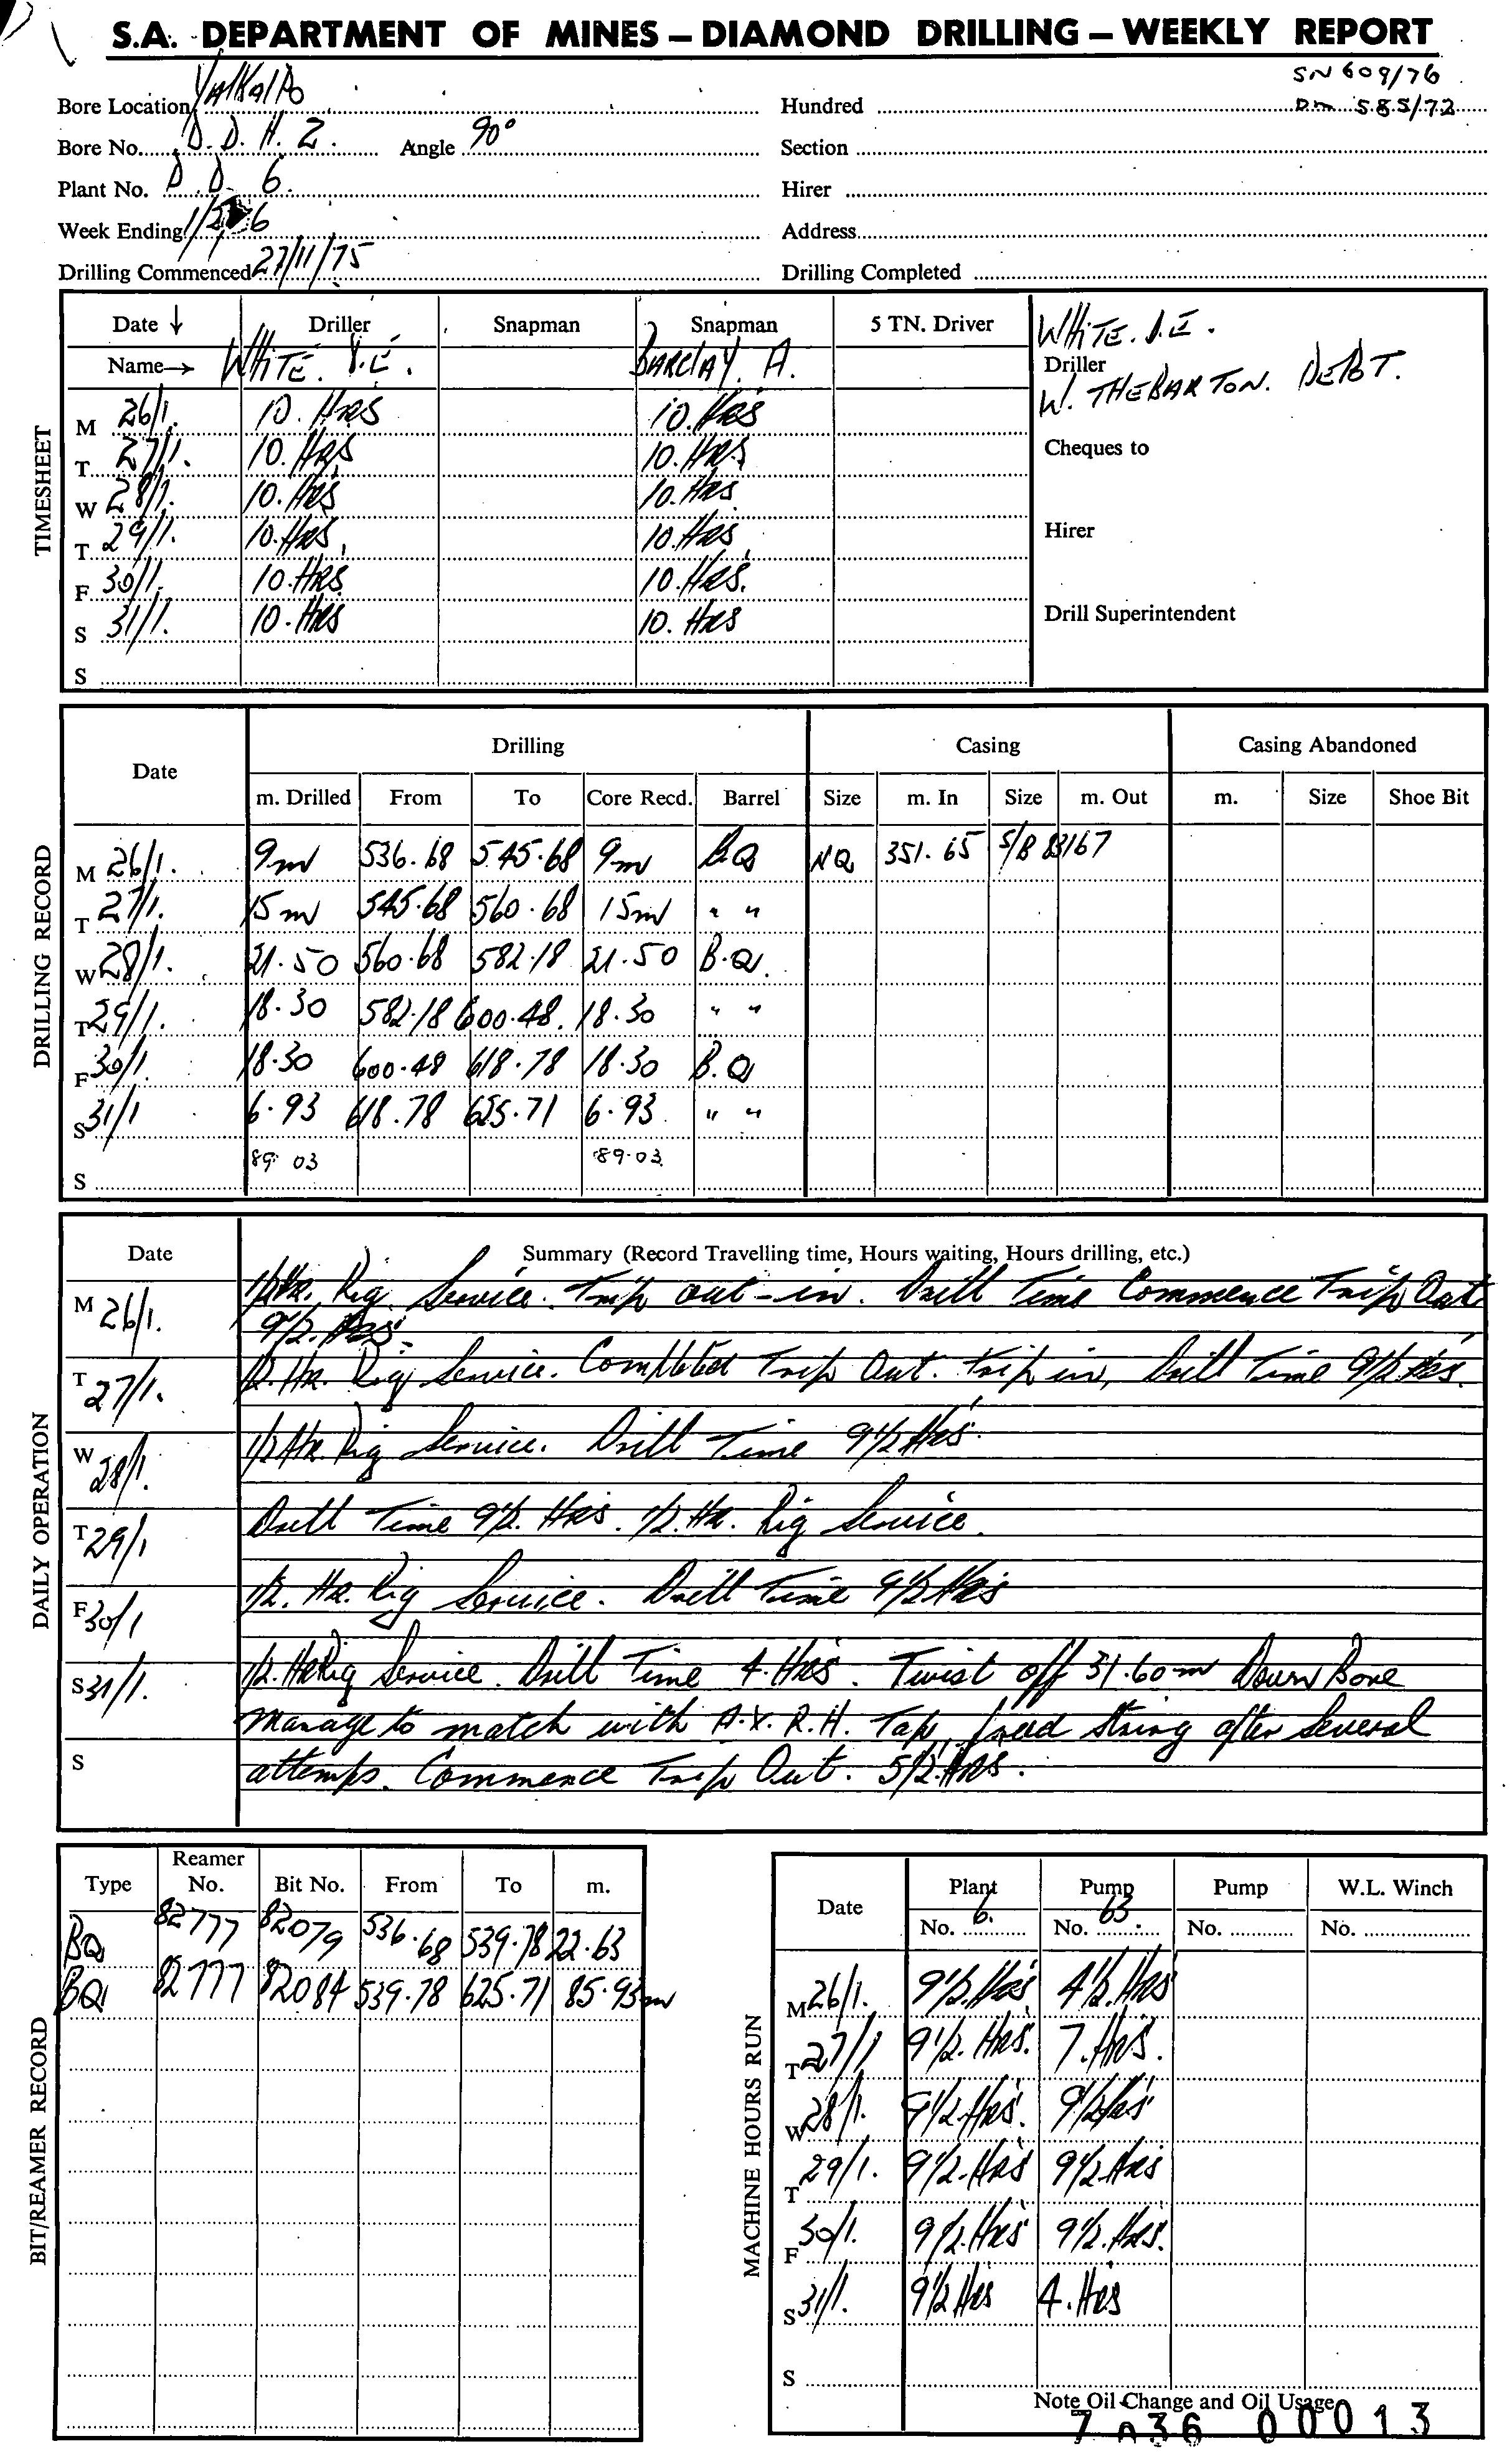 S.A. DEPARTMENT OF MINES – DIAMOND DRILLING – WEEKLY REPORT
SN 609/76
Bore Location Yalkalpo Hundred DM 585/72
Bore No. D.D.H. 2. Angle 90° Section
Plant No. D.D. 6. Hirer
Week Ending 1/2/76 Address
Drilling Commenced 27/11/75 Drilling Completed
TIMESHEET
Date ↓ Driller Snapman Snapman 5 TN. Driver WHITE. D.E.
Name→ WHITE. D.E. BARCLAY. A. Driller
W. THEBARTON. DEPT.
M 26/1. 10. HRS 10. HRS
T 27/1. 10. HRS 10. HRS Cheques to
W 28/1. 10. HRS 10. HRS
T 29/1. 10. HRS. 10. HRS Hirer
F 30/1. 10. HRS 10. HRS.
S 31/1. 10. HRS 10. HRS Drill Superintendent
S
DRILLING RECORD
Date Drilling Casing Casing Abandoned
m. Drilled From To Core Recd. Barrel Size m. In Size m. Out m. Size Shoe Bit
M 26/1. 9m 536.68 545.68 9m B.Q NQ 351.65 S/B 83167
T 27/1. 15m 545.68 560.68 15m " "
W 28/1. 21.50 560.68 582.18 21.50 B.Q.
T 29/1. 18.30 582.18 600.48. 18.30 " "
F 30/1. 18.30 600.48 618.78 18.30 B.Q
S 31/1 6.93 618.78 625.71 6.93 " "
89.03 89.03
S
DAILY OPERATION
Date Summary (Record Travelling time, Hours waiting, Hours drilling, etc.)
M 26/1. 1/2 Hr. Rig Service. Trip out-in. Drill Time Commence Trip Out
9 1/2. HRS.
T 27/1. 1/2. Hr. Rig Service. Completed Trip Out. Trip in, Drill Time 9 1/2 HRS.
W 28/1. 1/2 Hr. Rig Service. Drill Time 9 1/2 HRS.
T 29/1 Drill Time 9 1/2. HRS. 1/2. Hr. Rig Service.
F 30/1 1/2. Hr. Rig Service. Drill Time 9 1/2 HRS
S 31/1. 1/2. Hr Rig Service. Drill Time 4. HRS. Twist off 31.60m Down Bore
manage to match with A.X. R.H. Tap, freed string after several
S attemps. Commence Trip Out. 5 1/2. HRS.
BIT/REAMER RECORD
Type Reamer No. Bit No. From To m.
BQ 82777 82079 536.68 539.78 22.63
BQ 82777 82084 539.78 625.71 85.93m
MACHINE HOURS RUN
Date Plant Pump Pump W.L. Winch
No. 6. No. 63 No. No.
M 26/1. 9 1/2. HRS 4 1/2. HRS
T 27/1 9 1/2. HRS. 7. HRS.
W 28/1. 9 1/2. HRS. 9 1/2 HRS
T 29/1. 9 1/2. HRS 9 1/2 HRS
F 30/1. 9 1/2. HRS 9 1/2. HRS.
S 31/1. 9 1/2 HRS 4. HRS
S
Note Oil Change and Oil Usage
7036 00013